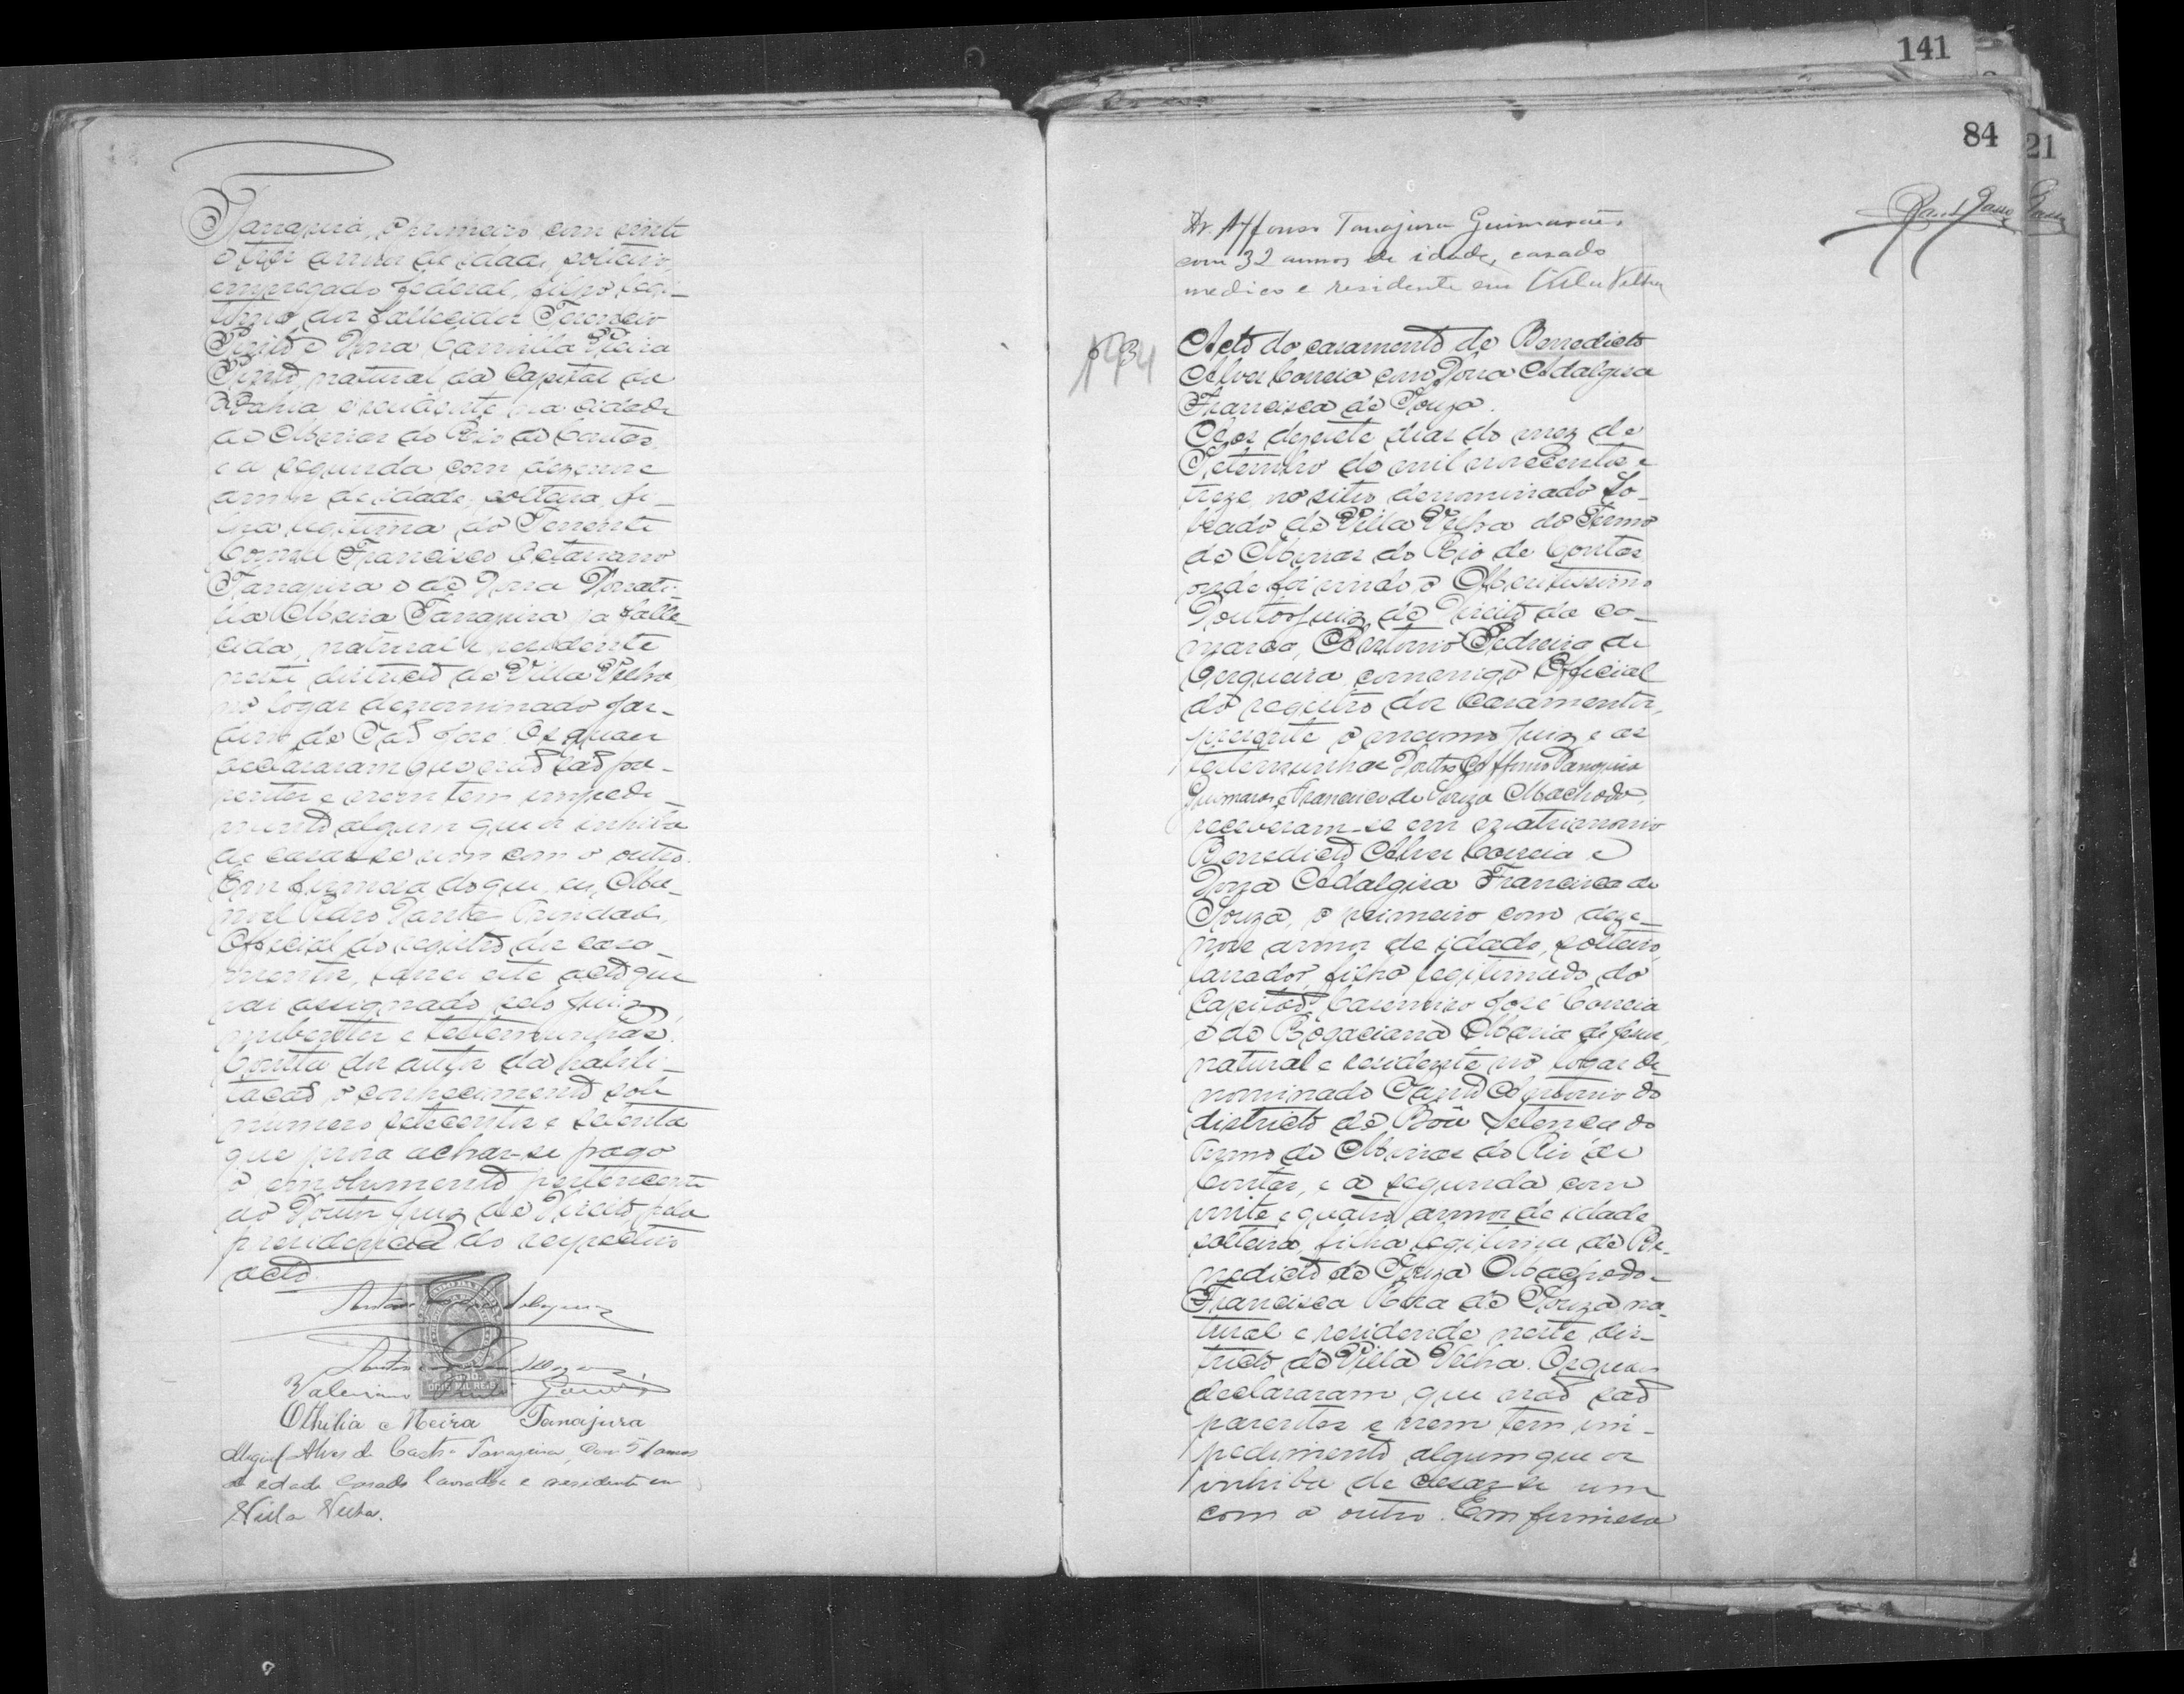 Tanajura, o primeiro com vinte
e tres annos de idade, solteiro,
empregado federal, filho legi-
timo dos fallecidos Terencio
Pinto e Dona Carmila Vieira
Pinto, natural da Capital da
Bahia e residente na cidade
de Minas do Rio de Contas,
e a segunda com dezenove
annos de idade, solteira, fi-
lha legitima do Tenente
Coronel Francisco Octaviano
Tanajura e de Dona Donati-
lia Meira Tanajura, ja falle-
cida, natural e residente
neste districto de Villa Velha
no logar denominado Jar-
dim de São José. Os quaes
declararam que não são pa-
rentes e nem tem impedi-
mento algum que os inhiba
de casar-se um com o outro.
Em firmeza do que, eu, Ma-
noel Pedro Dantas Trindade,
Official do registro dos casa-
mentos, lavrei este acto que
vai assignado pelo Juiz,
nubentes e testemunhas.
Consta dos autos da habili-
tação o conhecimento sob
numero setecentos e setenta
que prova achar-se pago
o emolumento pertencente
ao Doutor Juiz de Direito, pela
presidencia do respectivo
acto.
Antonio
DOIS MIL REIS
Antonio
Valeriano Pinto
Othilia Meira Tanajura
Miguel Alves de Castro Tanajura, com 51 annos
de edade casado lavrador e residente em
Villa Velha.
141
84
21
Dr. Affonso Tanajura Guimarães,
com 32 annos de idade, casado
medico e residente em Villa Velha
Nº 34
Acto do casamento de Benedicto
Alves Correia com Dona Adalgisa
Francisca de Souza.
Aos dezesete dias do mez de
Setembro de mil novecentos e
treze, no sitio denominado So-
brado de Villa Velha do Termo
de Minas do Rio de Contas,
onde foi vindo o Meritissimo
Doutor Juiz de Direito da co-
marca, Antonio Pedreira de
Cerqueira, commigo Official
do registro dos casamentos,
presente o mesmo Juiz e as
testemunhas Doutor Affonso Tanajura
Guimarães e Francisco de Souza Machado,
receveram-se em matrimonio
Benedicto Alves Correia e
Dona Adalgisa Francisca de
Souza, o primeiro com deze-
nove annos de idade, solteiro,
lavrador, filho legitimo do
Capitão Casemiro José Correia
e de Rogaciana Maria de Jesus,
natural e residente no logar de-
nominado Santo Antonio do
districto de Bôa Sentença do
Termo de Minas do Rio de
Contas, e a segunda com
vinte e quatro annos de idade
solteira, filha legitima de Be-
nedicto de Souza Machado e
Francisca Rosa de Souza, na-
tural e residende neste dis-
tricto de Villa Velha. Os quaes
declararam que não são
parentes e nem tem im-
pedimento algum que os
inhiba de casar-se um
com o outro. Em firmeza